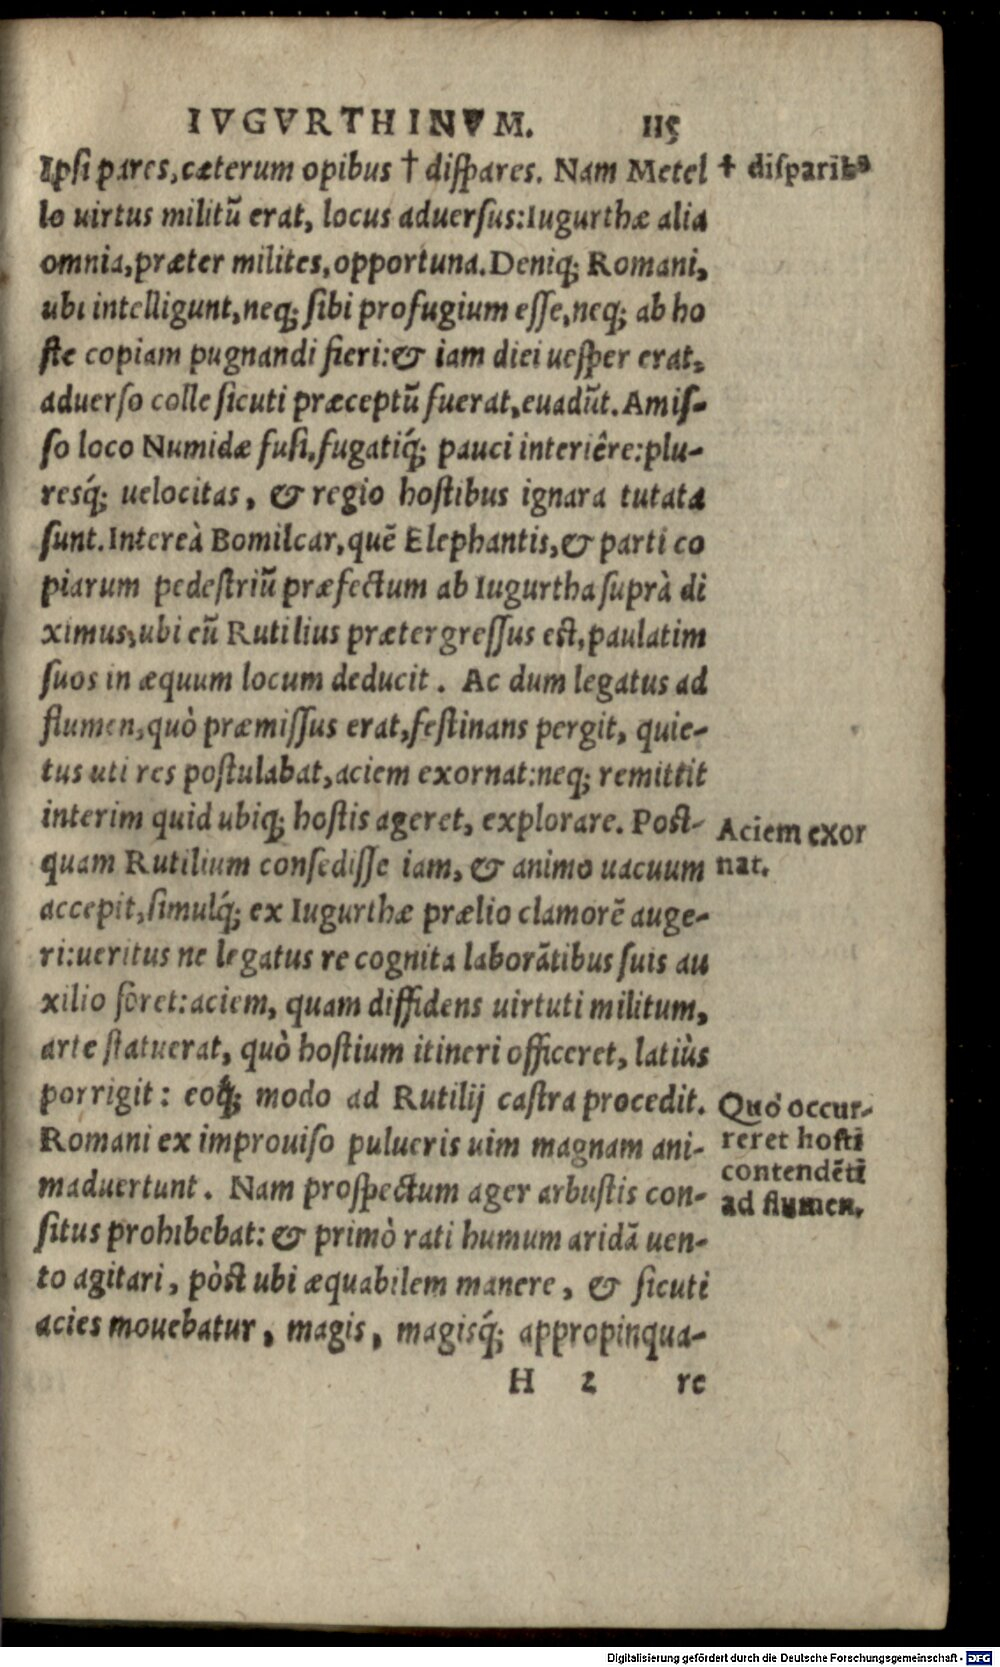 IVGVRTHINVM. 115
Ipsi pares, cæterum opibus † dispares. Nam Metel
† disparibꝰ
lo uirtus militũ erat, locus aduersus: Iugurthæ alia
omnia, præter milites, opportuna. Deniq; Romani,
ubi intelligunt, neq; sibi profugium esse, neq; ab ho
ste copiam pugnandi fieri: & iam diei uesper erat,
aduerso colle sicuti præceptũ fuerat, euadũt. Amis-
so loco Numidæ fusi, fugatiq́; pauci interiêre: plu-
resq́; uelocitas, & regio hostibus ignara tutata
sunt. Intereà Bomilcar, quẽ Elephantis, & parti co
piarum pedestriũ præfectum ab Iugurtha suprà di
ximus, ubi eũ Rutilius prætergressus est, paulatim
suos in æquum locum deducit. Ac dum legatus ad
flumen, quò præmissus erat, festinans pergit, quie-
tus uti res postulabat, aciem exornat: neq; remittit
interim quid ubiq; hostis ageret, explorare. Post-
Aciem exor
quam Rutilium consedisse iam, & animo uacuum
nat.
accepit, simulq́; ex Iugurthæ prælio clamorẽ auge-
ri: ueritus ne legatus re cognita laborãtibus suis au
xilio foret: aciem, quam diffidens uirtuti militum,
arte statuerat, quò hostium itineri officeret, latiùs
porrigit: eoq́; modo ad Rutilij castra procedit.
Quò occur-
Romani ex improuiso pulueris uim magnam ani-
reret hosti
contendẽti
maduertunt. Nam prospectum ager arbustis con-
ad flumen.
situs prohibebat: & primò rati humum aridã uen-
to agitari, pòst ubi æquabilem manere, & sicuti
acies mouebatur, magis, magisq́; appropinqua-
H 2 re
Digitalisierung gefördert durch die Deutsche Forschungsgemeinschaft - DFG